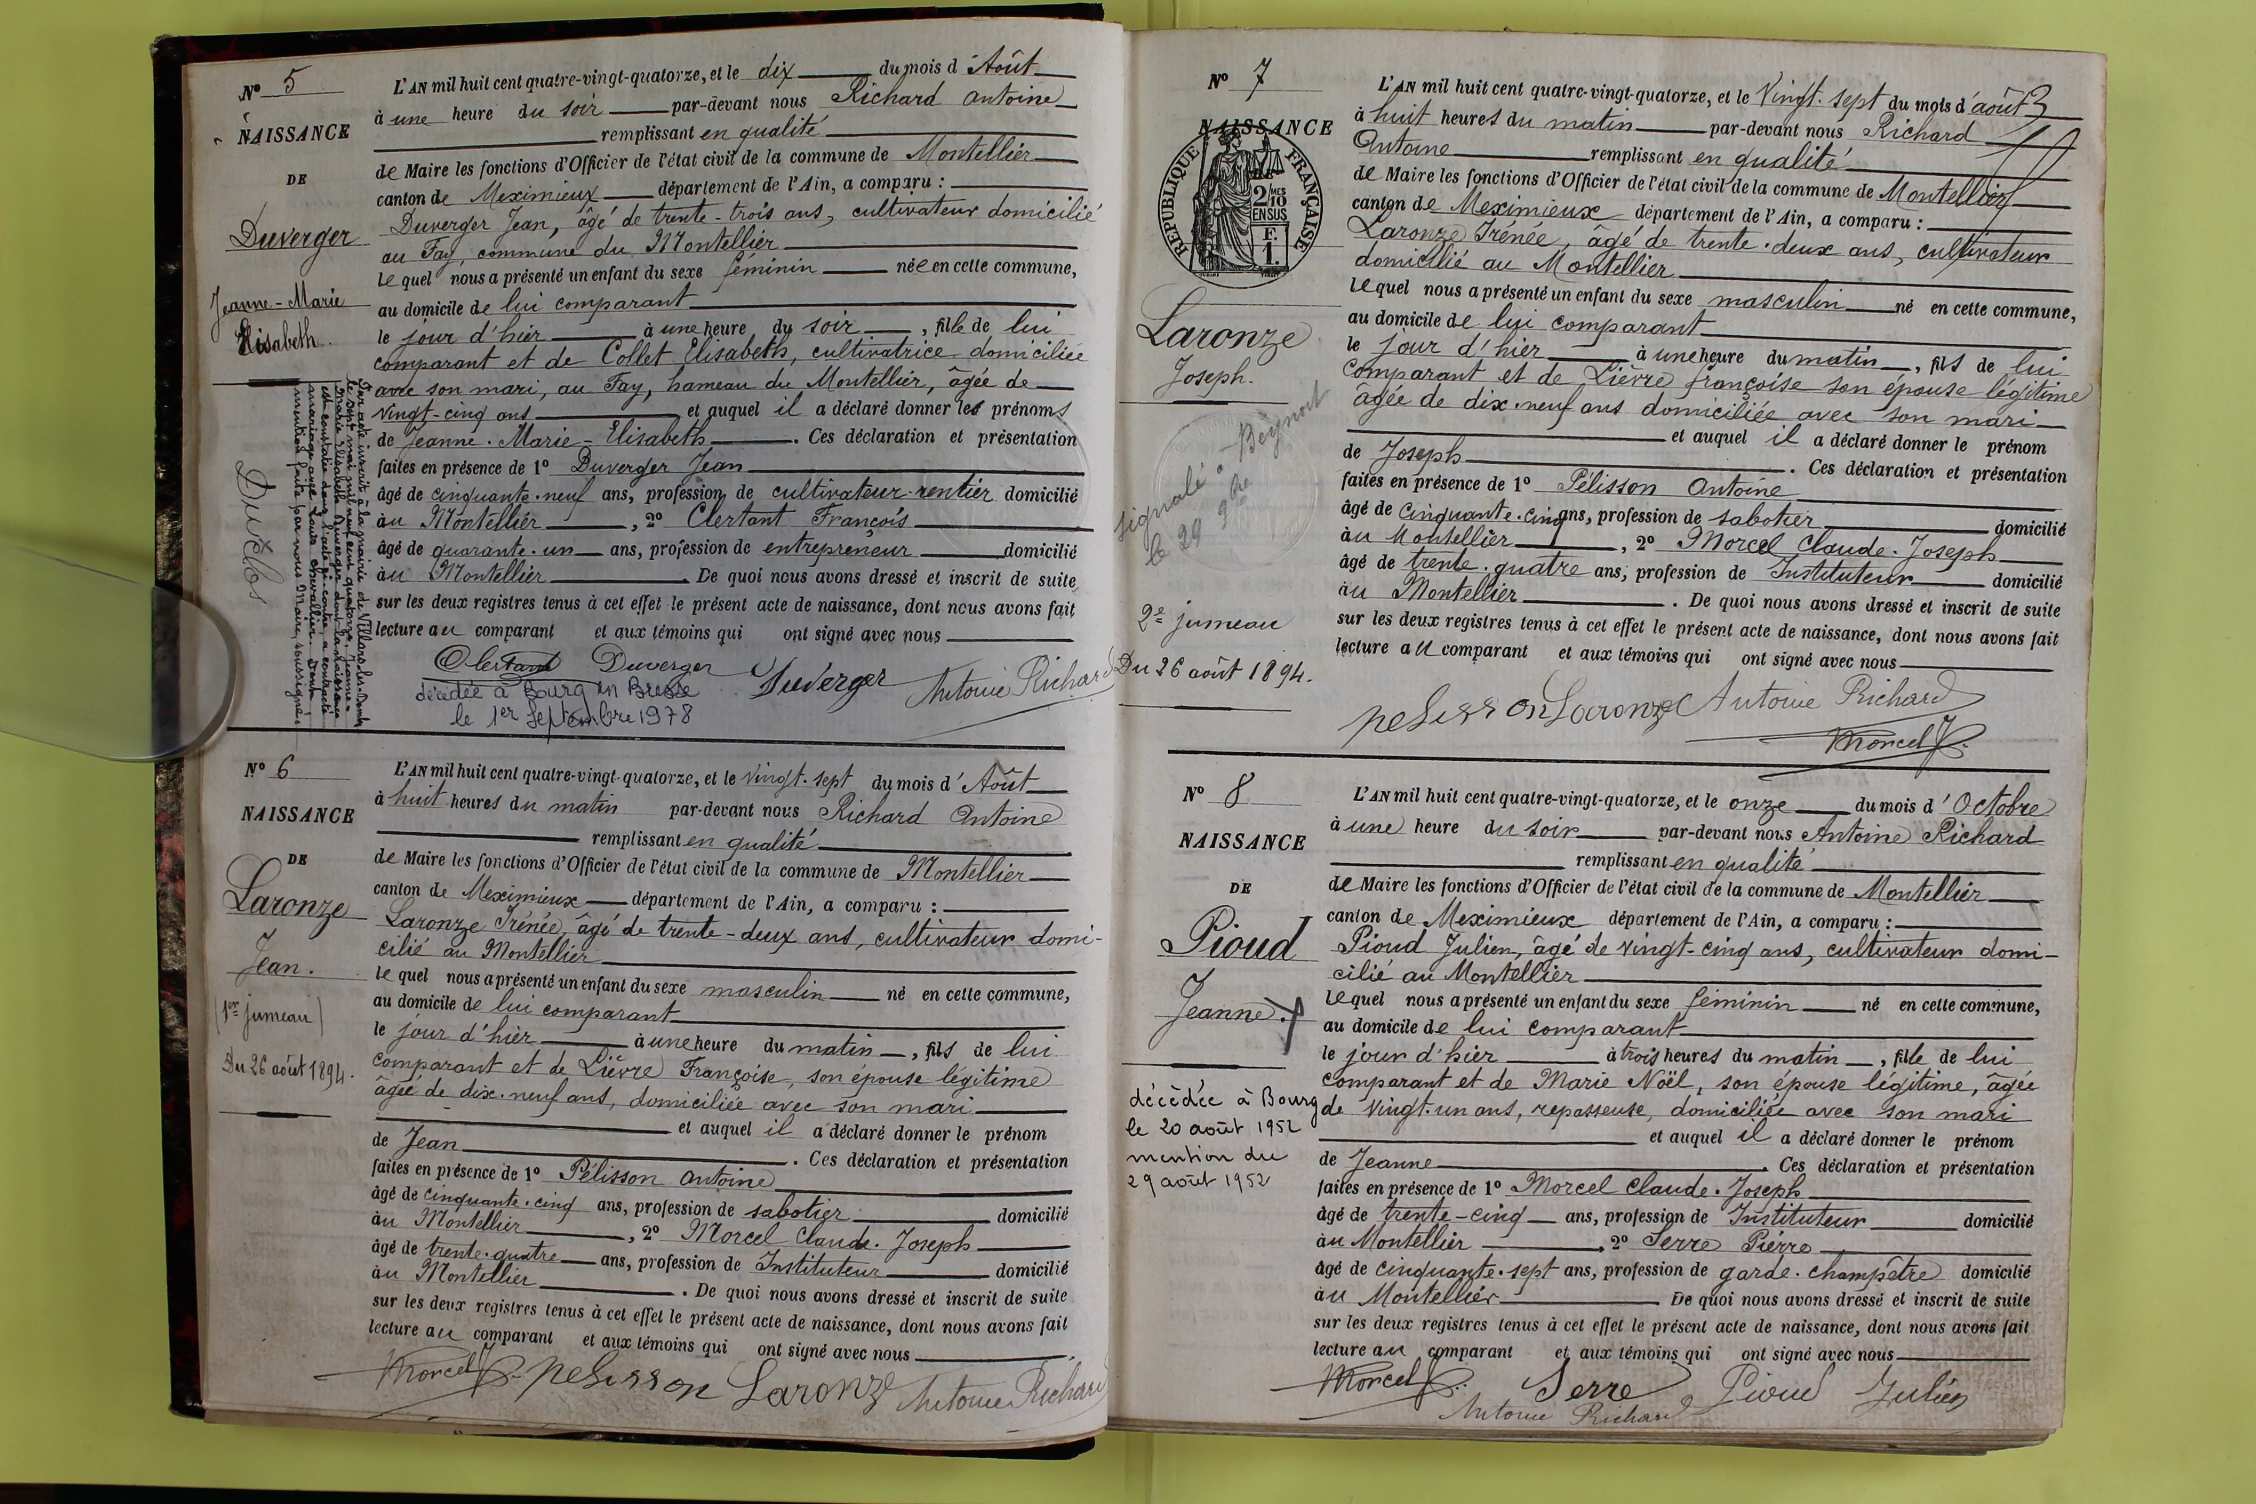 N° 5
NAISSANCE
DE
Duverger
Jeanne-Marie
Elisabeth.
Par acte inscrit à la mairie de Villars-les-Dombes
mil neuf cent quatorze, Jeanne-
Marie Elisabeth Duverger dont la naissance
est constatée dans l'acte ci-contre, a contracté
mariage avec Louis Chevallier. Dont
mention faite par nous Maire, soussigné
Duclos
L'AN mil huit cent quatre-vingt-quatorze, et le dix du mois d'Août
à une heure du soir par-devant nous Richard Antoine
remplissant en qualité
de Maire les fonctions d'Officier de l'état civil de la commune de Montellier
canton de Meximieux département de l'Ain, a comparu :
Duverger Jean, âgé de trente-trois ans, cultivateur domicilié
au Fay, commune du Montellier
lequel nous a présenté un enfant du sexe féminin née en cette commune,
au domicile de lui comparant
le jour d'hier à une heure du soir, fille de lui
comparant et de Collet Elisabeth, cultivatrice domiciliée
avec son mari, au Fay, hameau du Montellier, âgée de
vingt-cinq ans et auquel il a déclaré donner les prénoms
de Jeanne-Marie-Elisabeth. Ces déclaration et présentation
faites en présence de 1° Duverger Jean
âgé de cinquante-neuf ans, profession de cultivateur-rentier domicilié
au Montellier, 2° Clertant François
âgé de quarante-un ans, profession de entrepreneur domicilié
au Montellier. De quoi nous avons dressé et inscrit de suite
sur les deux registres tenus à cet effet le présent acte de naissance, dont nous avons fait
lecture au comparant et aux témoins qui ont signé avec nous
Clertant Duverger Duverger Antoine Richard
décédée à Bourg en Bresse
le 1er Septembre 1978
N° 6
NAISSANCE
DE
Laronze
Jean.
(1er jumeau)
Du 26 août 1894.
L'AN mil huit cent quatre-vingt-quatorze, et le vingt-sept du mois d'Août
à huit heures du matin par-devant nous Richard Antoine
remplissant en qualité
de Maire les fonctions d'Officier de l'état civil de la commune de Montellier
canton de Meximieux département de l'Ain, a comparu :
Laronze Irénée, âgé de trente-deux ans, cultivateur domi-
cilié au Montellier
lequel nous a présenté un enfant du sexe masculin né en cette commune,
au domicile de lui comparant
le jour d'hier à une heure du matin, fils de lui
comparant et de Lièvre Françoise, son épouse légitime
âgée de dix-neuf ans, domiciliée avec son mari
et auquel il a déclaré donner le prénom
de Jean. Ces déclaration et présentation
faites en présence de 1° Pélisson Antoine
âgé de cinquante-cinq ans, profession de sabotier domicilié
au Montellier, 2° Morcel Claude-Joseph
âgé de trente-quatre ans, profession de Instituteur domicilié
au Montellier. De quoi nous avons dressé et inscrit de suite
sur les deux registres tenus à cet effet le présent acte de naissance, dont nous avons fait
lecture au comparant et aux témoins qui ont signé avec nous
Morcel J. pelisson Laronze Antoine Richard
N° 7
NAISSANCE
RÉPUBLIQUE FRANÇAISE
2/10 EN SUS
F. 1.
Laronze
Joseph.
signalé à Beynost
le 29 9bre
2e jumeau
Du 26 août 1894.
L'AN mil huit cent quatre-vingt-quatorze, et le vingt-sept du mois d'août
à huit heures du matin par-devant nous Richard
Antoine remplissant en qualité
de Maire les fonctions d'Officier de l'état civil de la commune de Montellier
canton de Meximieux département de l'Ain, a comparu :
Laronze Irénée, âgé de trente-deux ans, cultivateur
domicilié au Montellier
lequel nous a présenté un enfant du sexe masculin né en cette commune,
au domicile de lui comparant
le jour d'hier à une heure du matin, fils de lui
comparant et de Lièvre Françoise son épouse légitime
âgée de dix-neuf ans domiciliée avec son mari
et auquel il a déclaré donner le prénom
de Joseph. Ces déclaration et présentation
faites en présence de 1° Pélisson Antoine
âgé de cinquante-cinq ans, profession de sabotier domicilié
au Montellier, 2° Morcel Claude-Joseph
âgé de trente-quatre ans, profession de Instituteur domicilié
au Montellier. De quoi nous avons dressé et inscrit de suite
sur les deux registres tenus à cet effet le présent acte de naissance, dont nous avons fait
lecture au comparant et aux témoins qui ont signé avec nous
pelisson Laronze Antoine Richard
Morcel J.
N° 8
NAISSANCE
DE
Pioud
Jeanne.
décédée à Bourg
le 20 août 1952
mention du
29 août 1952
L'AN mil huit cent quatre-vingt-quatorze, et le onze du mois d'Octobre
à une heure du soir par-devant nous Antoine Richard
remplissant en qualité
de Maire les fonctions d'Officier de l'état civil de la commune de Montellier
canton de Meximieux département de l'Ain, a comparu :
Pioud Julien, âgé de vingt-cinq ans, cultivateur domi-
cilié au Montellier
lequel nous a présenté un enfant du sexe féminin né en cette commune,
au domicile de lui comparant
le jour d'hier à trois heures du matin, fille de lui
comparant et de Marie Noël, son épouse légitime, âgée
de vingt-un ans, repasseuse, domiciliée avec son mari
et auquel il a déclaré donner le prénom
de Jeanne. Ces déclaration et présentation
faites en présence de 1° Morcel Claude-Joseph
âgé de trente-cinq ans, profession de Instituteur domicilié
au Montellier, 2° Serre Pierre
âgé de cinquante-sept ans, profession de garde-champêtre domicilié
au Montellier De quoi nous avons dressé et inscrit de suite
sur les deux registres tenus à cet effet le présent acte de naissance, dont nous avons fait
lecture au comparant et aux témoins qui ont signé avec nous
Morcel J. Serre Pioud Julien
Antoine Richard